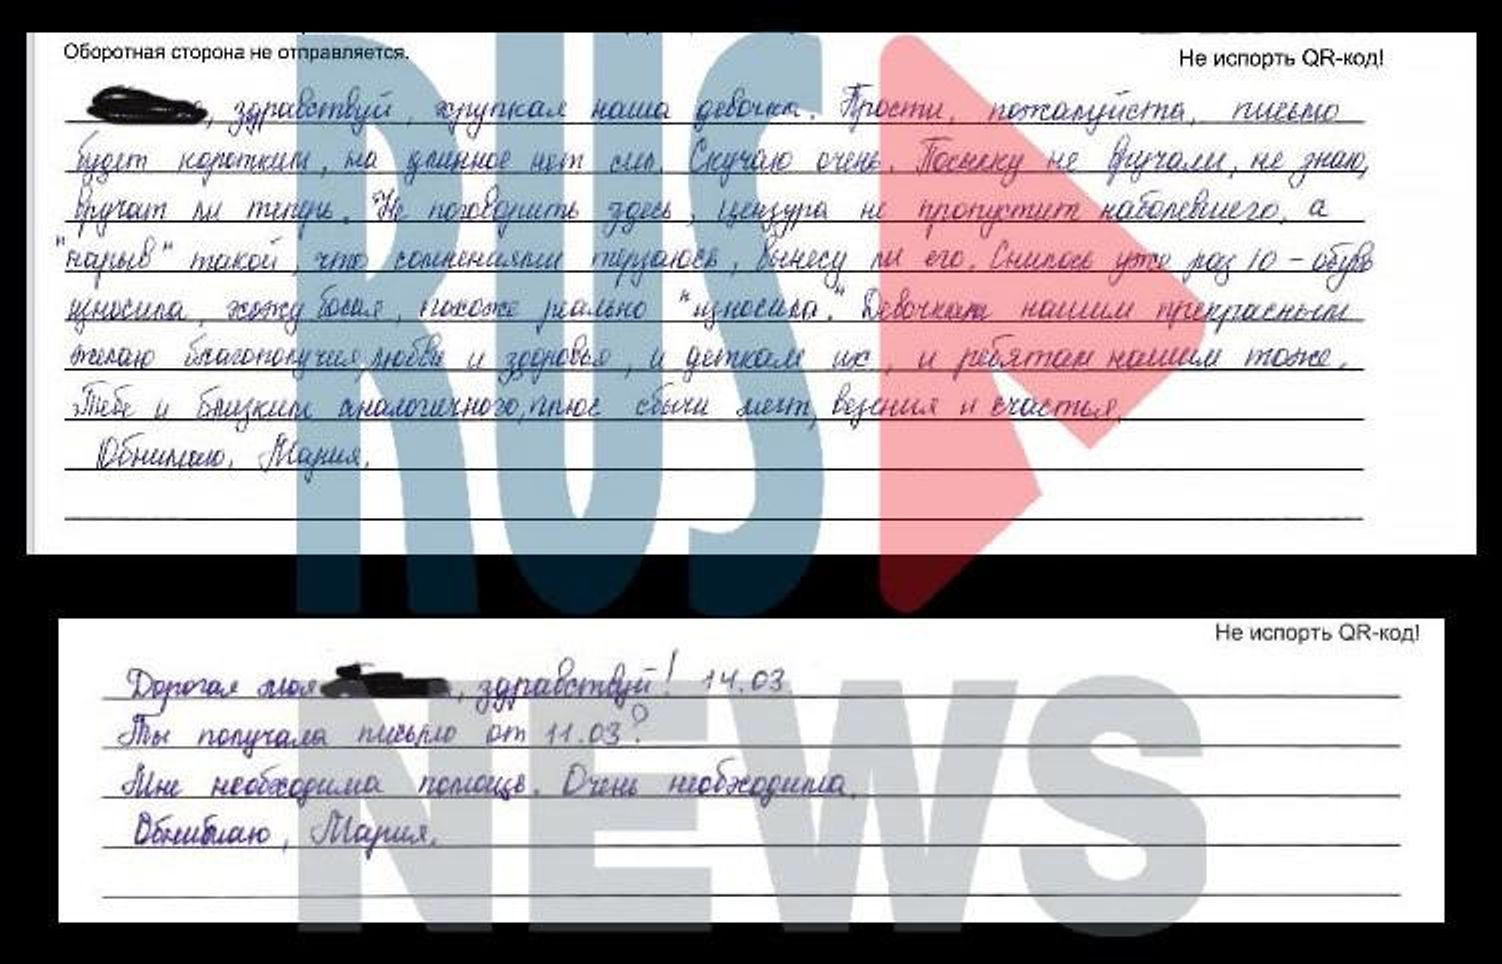 Оборотная сторона не отправляется.
Не испорть QR-код!
здравствуй, хрупкая наша девочка. Прости, пожалуйста, письмо
будет коротким, на длинное нет сил. Скучаю очень. Посылку не вручали, не знаю,
вручат ли теперь. Не поговорить здесь, цензура не пропустит наболевшего, а
"нарыв" такой, что сомнениями терзаюсь, вынесу ли его. Снилось уже раз 10 – обувь
износила, хожу босая, похоже реально "износила". Девочкам нашим прекрасным
желаю благополучия, любви и здоровья, и деткам их, и ребятам нашим тоже.
Тебе и близким аналогичного, плюс сбычи мечт, везения и счастья.
Обнимаю, Мария.
Не испорть QR-код!
Дорогая моя , здравствуй! 14.03
Ты получала письмо от 11.03?
Мне необходима помощь. Очень необходима.
Обнимаю, Мария.
RUS
NEWS